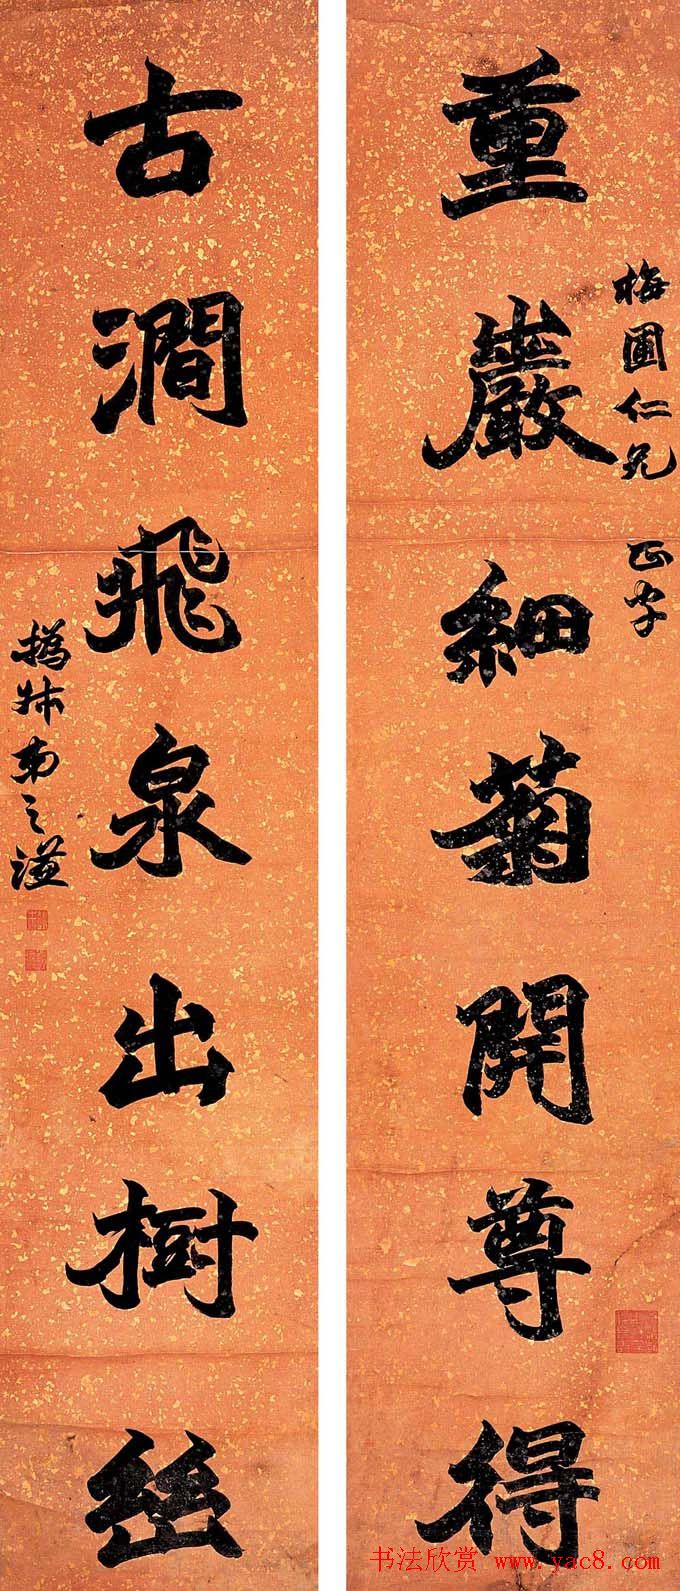 重巖細菊開尊得
梅圃仁兄 正字
古澗飛泉出樹幽
撝叔弟之謙
书法欣赏 www.yac8.com